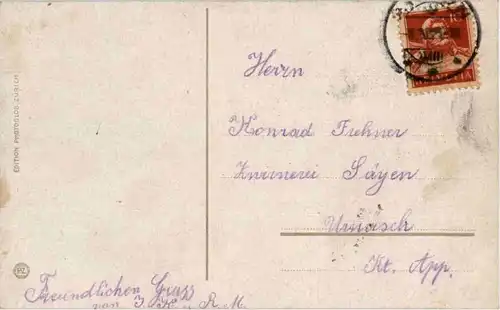 Herrn
Konrad Frehner
Säyen
Urnäsch
Kt. App.
Freundlichen Gruss
von J. K. u. R. M.
EDITION PHOTOGLOB ZÜRICH
PZ
HELVETIA
10